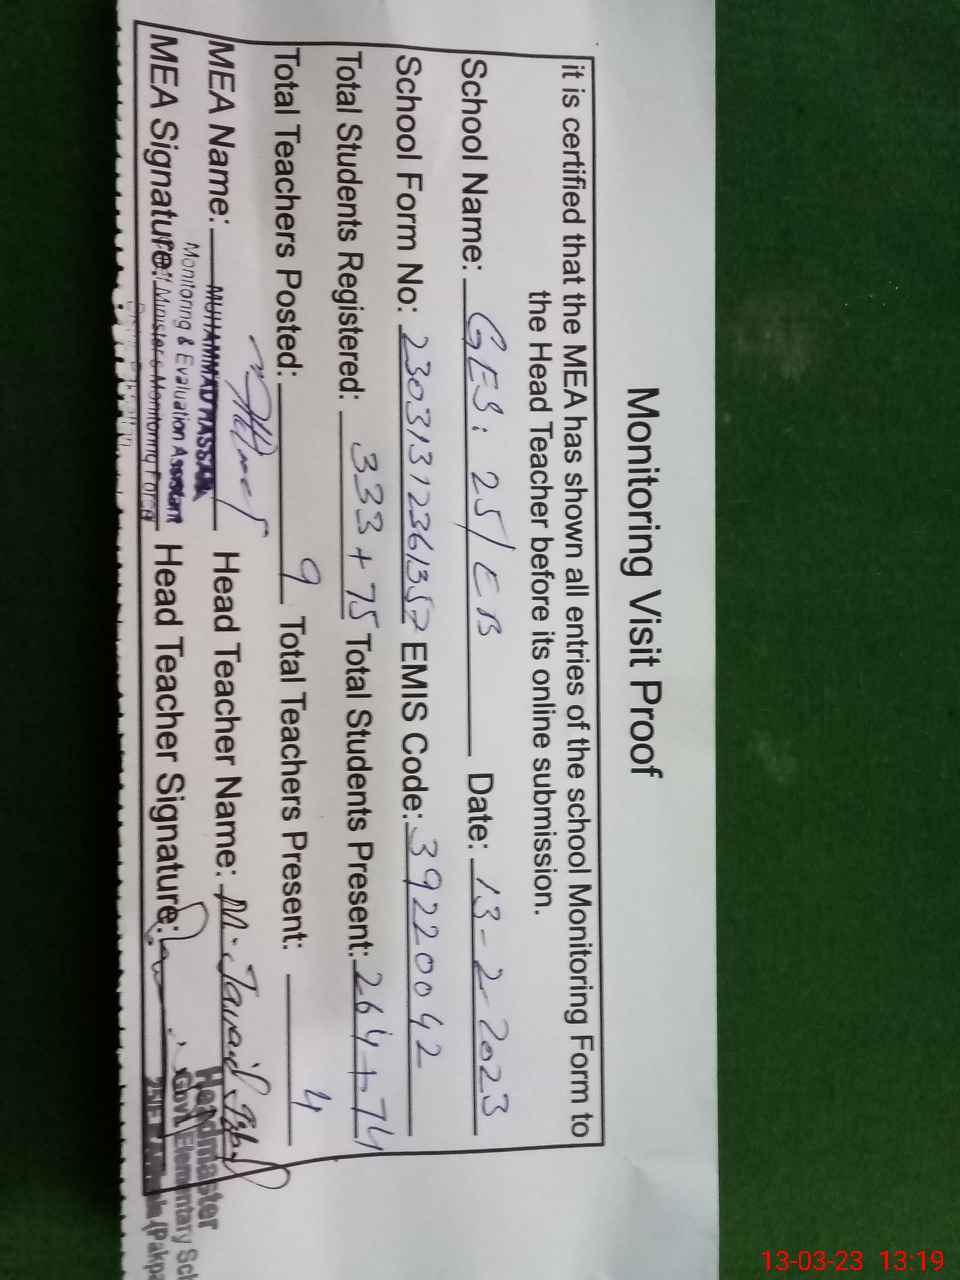 Monitoring Visit Proof
it is certified that the MEA has shown all entries of the school Monitoring Form to
the Head Teacher before its online submission.
School Name: GES: 25/EB Date: 13-2-2023
School Form No: 23031312361357 EMIS Code: 39220042
Total Students Registered: 333+75 Total Students Present: 264+74
Total Teachers Posted: 9 Total Teachers Present: 4
MEA Name: MUHAMMAD HASSAN Head Teacher Name: M. Javaid Iqbal
Monitoring & Evaluation Assistant
MEA Signature: Chief Minister's Monitoring Force Head Teacher Signature:
Headmaster
Govt. Elementary Sch
13-03-23 13:19